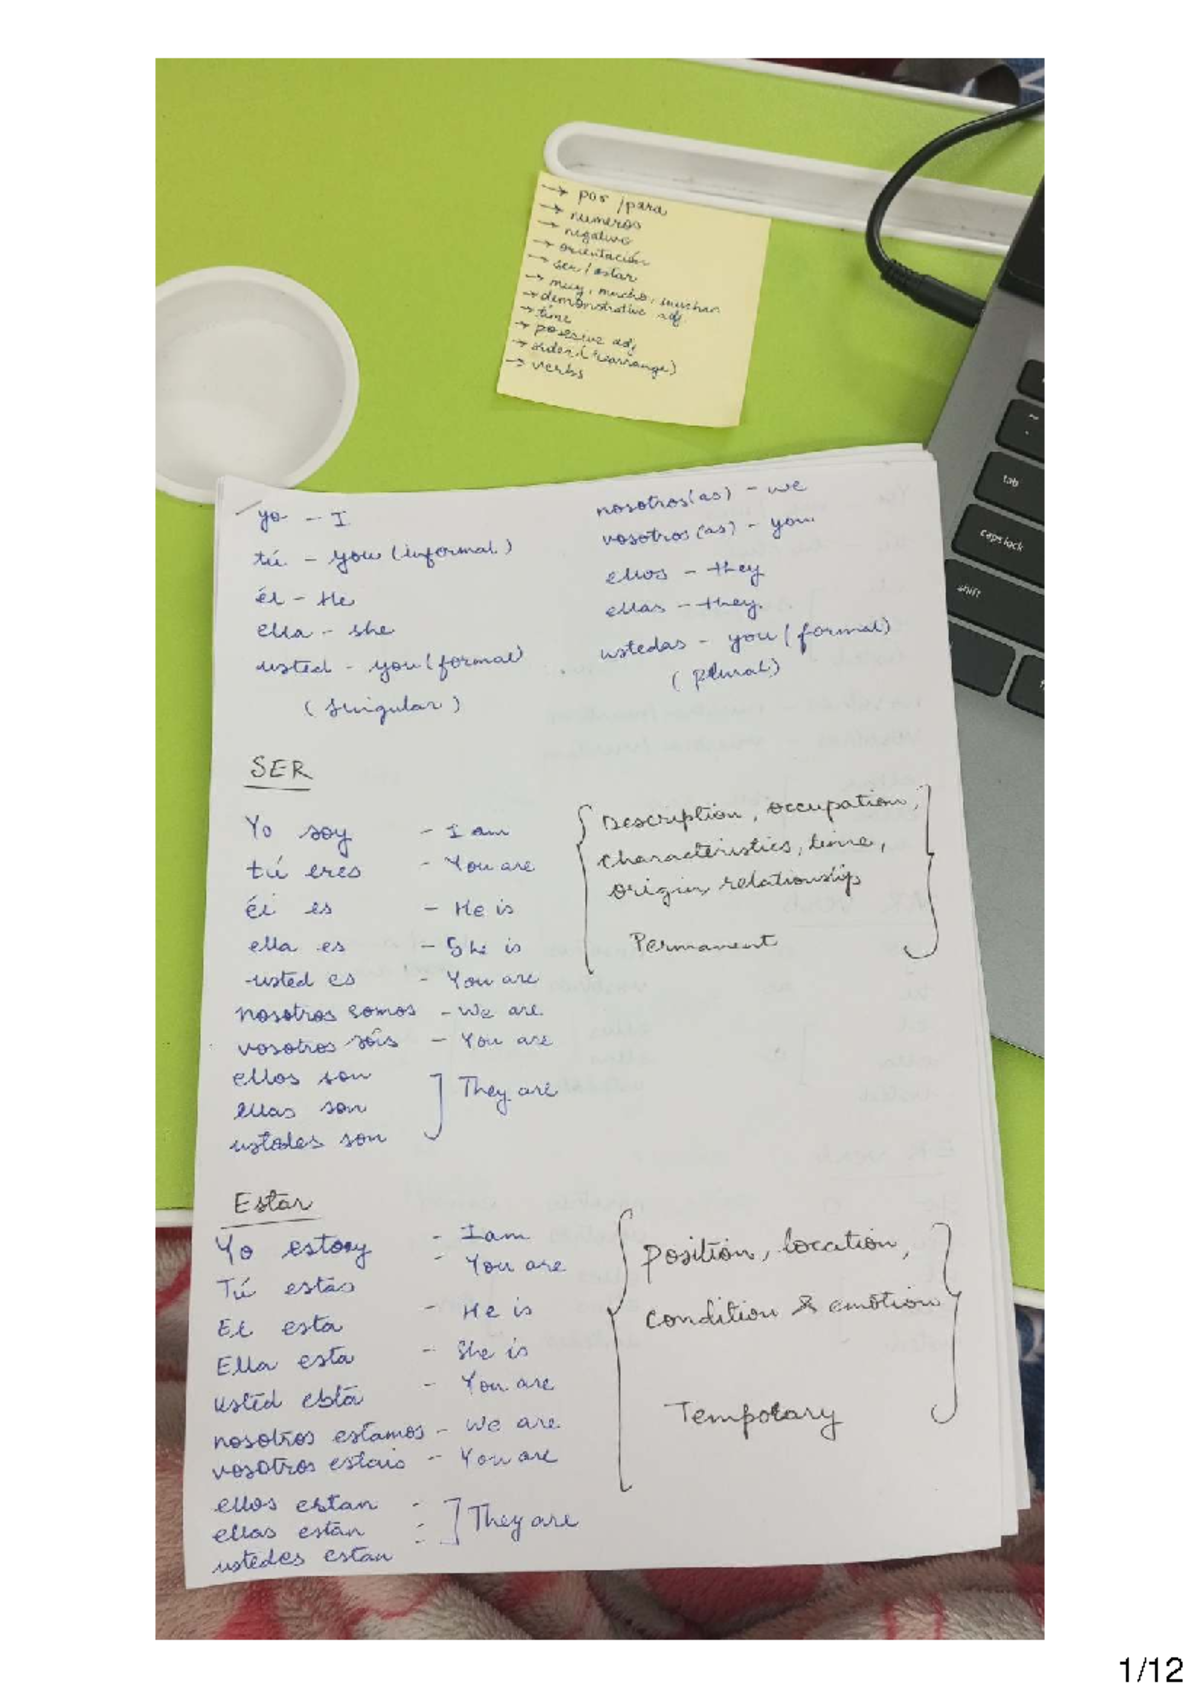 → por /para
→ numeros
→ negative
→ orientación
→ ser / estar
→ muy, mucho, muchas
→ demonstrative adj.
→ time
→ posesive adj
→ order (rearrange)
→ verbs
yo - I
tú - you (informal)
él - He
ella - she
usted - you (formal)
(singular)
nosotros(as) - we
vosotros(as) - you
ellos - they
ellas - they.
ustedas - you (formal)
(plural)
SER
Yo soy - I am
tú eres - You are
él es - He is
ella es - She is
usted es - You are
nosotros somos - We are
vosotros sóis - You are
ellos son
ellas son
ustedes son
They are
Description, occupation,
characteristics, time,
origin, relationship
Permanent
Estar
Yo estoy - I am
Tú estás - You are
El esta - He is
Ella esta - She is
usted está - You are
nosotros estamos - We are
vosotros estais - You are
ellos estan -
ellas están -
ustedes estan
They are
position, location,
condition & emotion
Temporary
tab
caps lock
shift
1/12